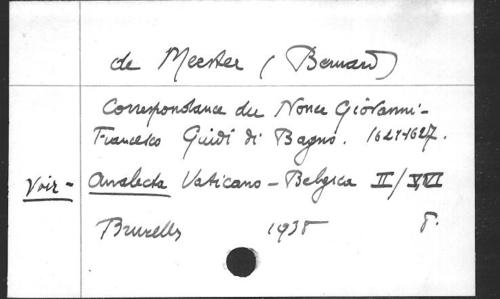 de Meester (Bernard)
Correspondance du Nonce Giovanni-
Francesco Guidi di Bagno. 1621-1627.
Voir - Analecta Vaticano-Belgica II/V,VI
Bruxelles 1938 8.